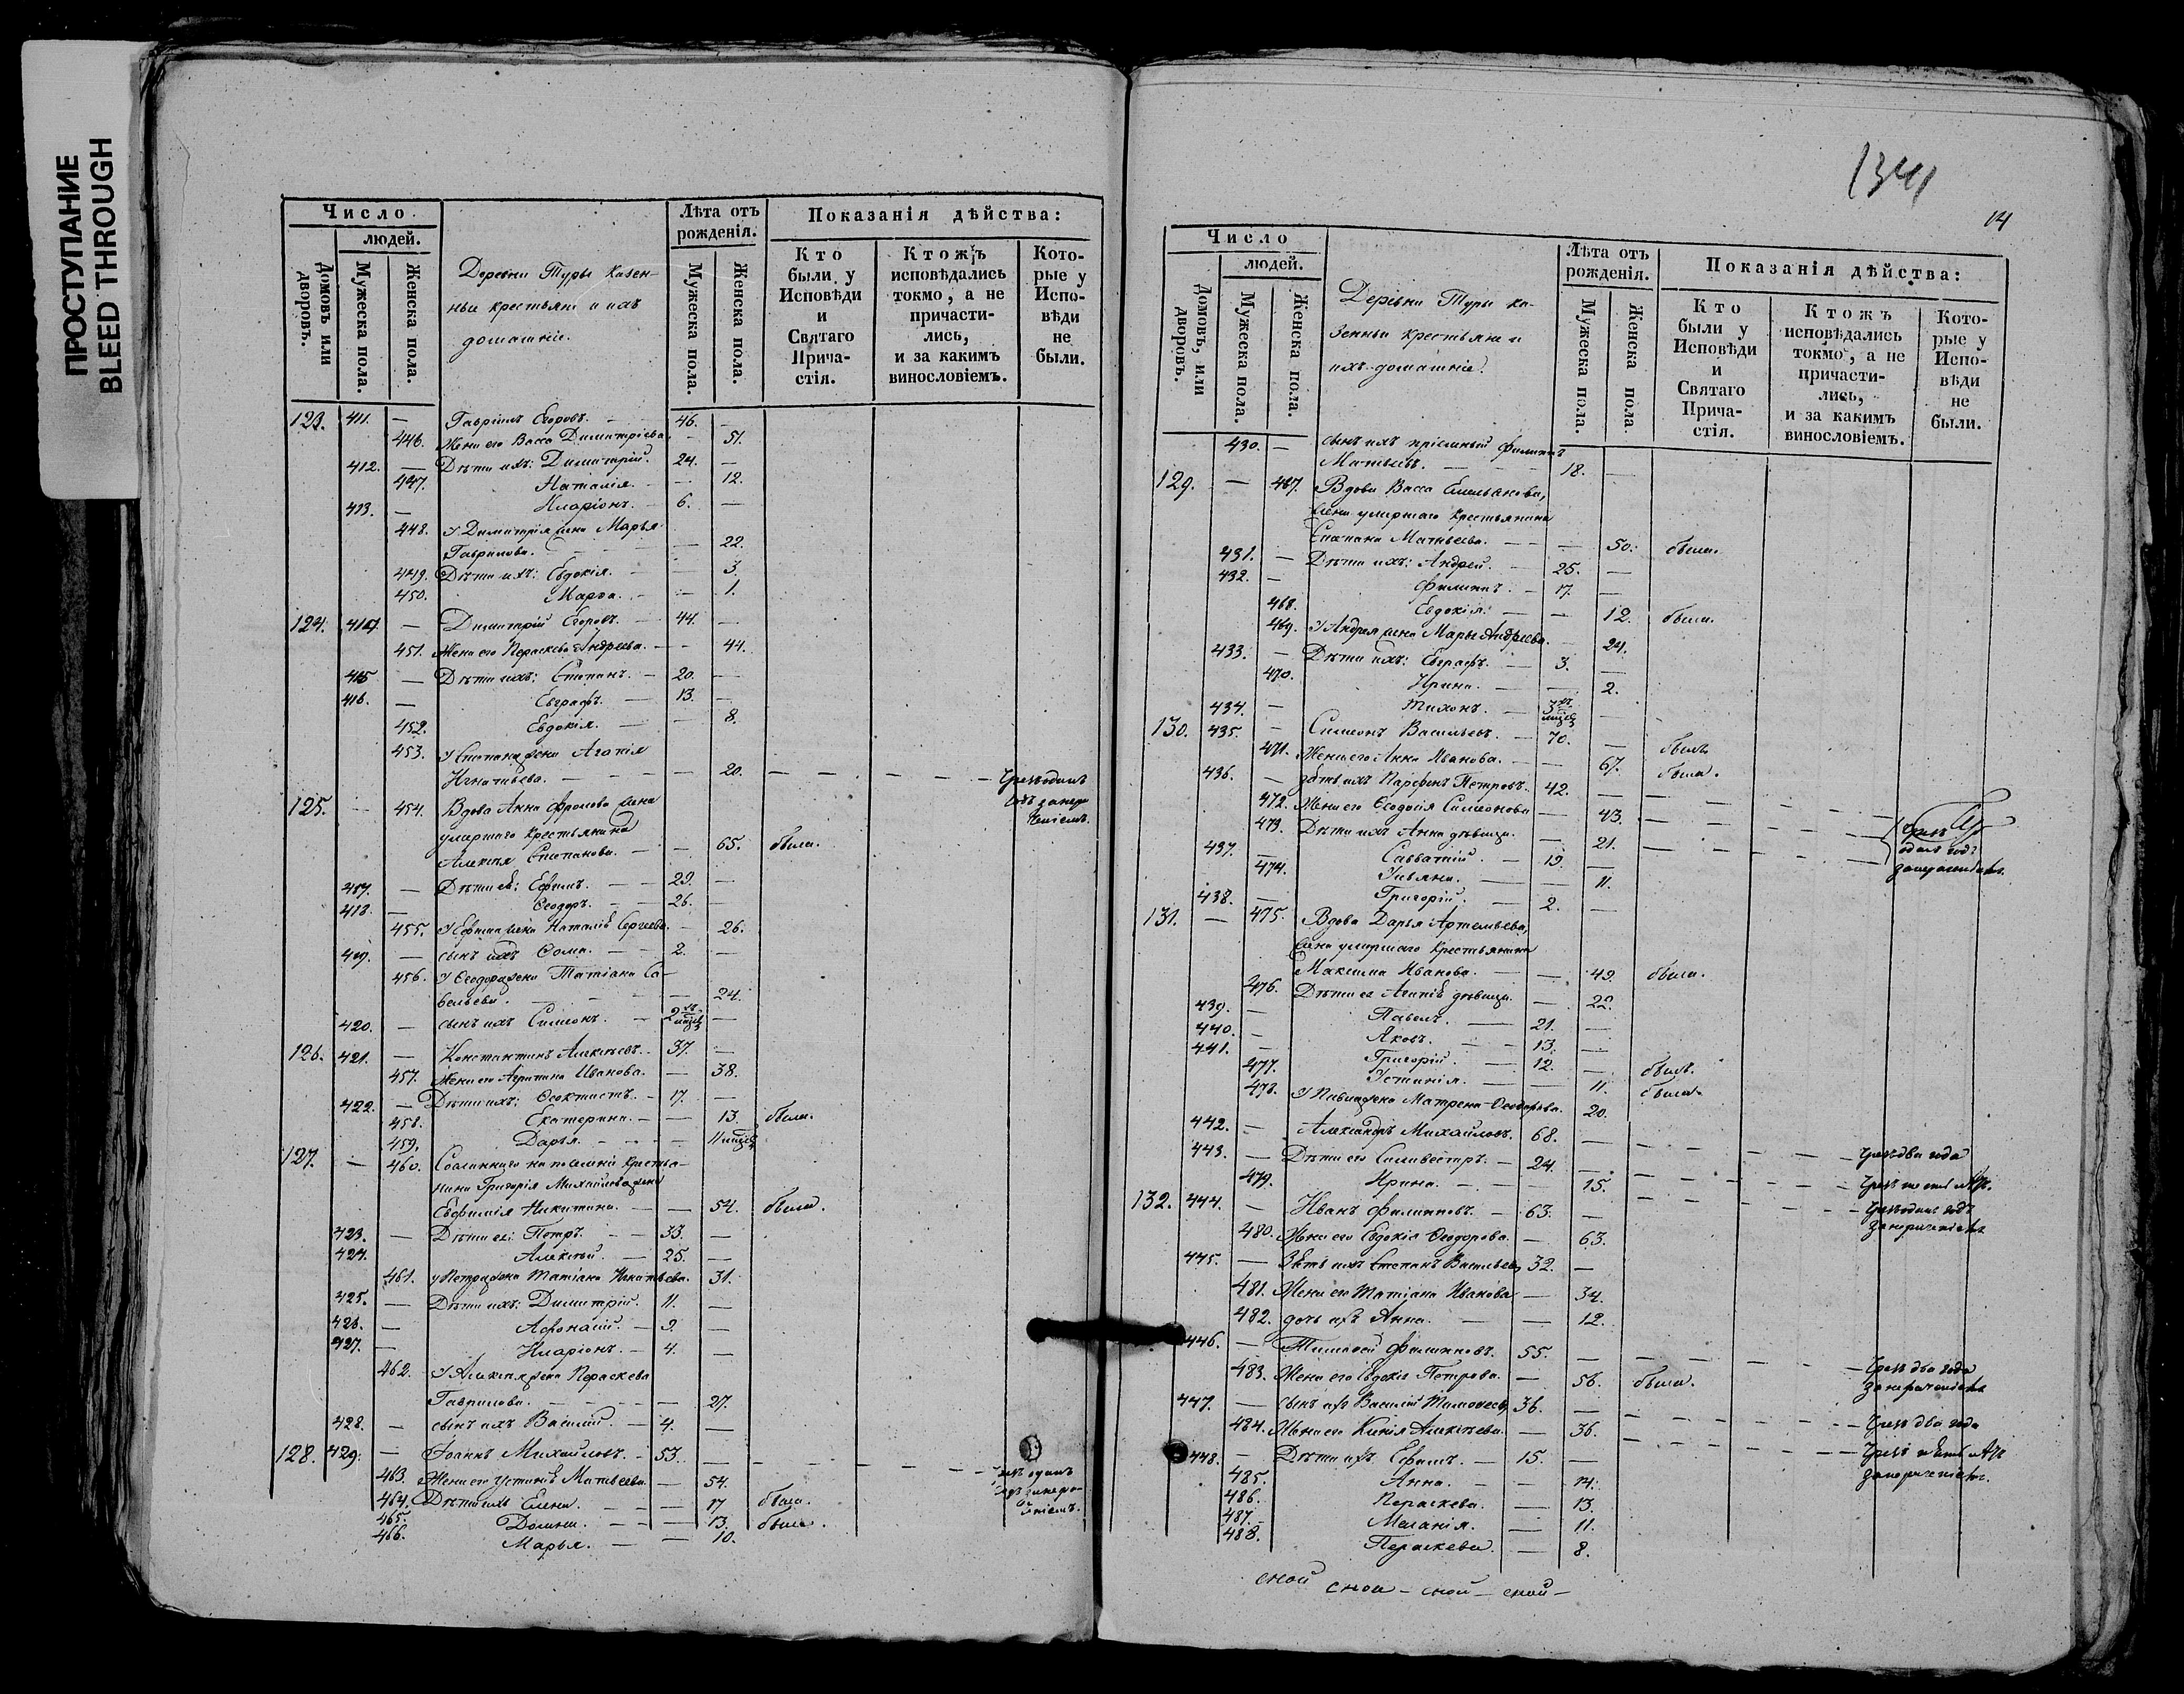 ПРОСТУПАНИЕ
BLEED THROUGH
Число
людей.
Домовъ или дворовъ.
Мужеска пола.
Женска пола.
Деревни Туры казен-
ныи крестьяне и ихъ
домашніе.
Лѣта отъ рожденія.
Мужеска пола.
Женска пола.
Показанія дѣйства:
Кто были у Исповѣди и Святаго Прича-стія.
Ктожъ исповѣдались токмо, а не причасти-лись, и за какимъ винословіемъ.
Кото-рые у Испо-вѣди не были.
123. 411. — Гавріилъ Егоровъ. — 46. —
446. Жена его Васса Димитріева. — 51.
412. — Дѣти ихъ: Димитрій. 24. —
447. Наталія. — 12.
413. — Иларіонъ. — 6. —
448. У Димитрія жена Марья
Гаврилова. — 22.
449. Дѣти ихъ: Евдокія. — 3.
450. Марѳа. — 1.
124. 414. — Димитрій Егоровъ. — 44. —
451. Жена его Параскева Андреева. — 44.
415 — Дѣти ихъ: Степанъ. — 20. —
416. — Евграфъ. — 13. —
452. Евдокія. — 8.
453. У Степана жена Агапія
Игнатьева. — 20. — — — — — — Чрезъ одинъ
годъ
125. — 454. Вдова Анна Фролова жена
умершаго крестьянина
Алексѣя Степанова. — 65. была.
417. — Дѣти ея: Ефимъ. — 29. —
418. — Ѳеодоръ. — 26. —
455. У Ефима жена Наталія Сергеева. — 26.
419. — сынъ ихъ Ѳома. — 2. —
456. У Ѳеодора жена Татіана Са-
вельева. — 24.
420. — сынъ ихъ Симеонъ. — 2хъ мцев —
126. 421. — Константинъ Алексѣевъ. 37. —
457. Жена его Агрипина Иванова. — 38.
422. — Дѣти ихъ: Ѳеоктистъ. — 17. —
458. Екатерина. — 13. была.
459. Дарья. — 11 мцев
127. — 460. Сосланнаго на поселеніе крестья-
нина Григорія Михайлова жена
Евфимія Никитина. — 54. была.
423. — Дѣти ея: Петръ. — 33. —
424. — Алексѣй. — 25. —
461. у Петра жена Татіана Игнатьева. 31.
425. — Дѣти ихъ: Димитрій. 11. —
426. — Аѳонасій. — 9. —
427. — Иларіонъ. — 4. —
462. У Алексѣя жена Параскева
Гаврилова. — 27.
428. — сынъ ихъ Василій. — 4. —
128. 429. — Іоаннъ Михайловъ. — 53. — — — — — —
463. Жена его Устинія Матвеева. — 54.
464. Дѣти ихъ Елена. — 17 была.
465. Домна. — 13. была.
466. Марья. — 10.
1341
14
Число
людей.
Домовъ, или дворовъ.
Мужеска пола.
Женска пола.
Деревни Туры ка-
зенныи крестьяне и
ихъ домашніе.
Лѣта отъ рожденія.
Мужеска пола.
Женска пола.
Показанія дѣйства:
Кто были у Исповѣди и Святаго Прича-стія.
Ктожъ исповѣдались токмо, а не причасти-лись, и за какимъ винословіемъ.
Кото-рые у Испо-вѣди не были.
430. — сынъ ихъ пріемный Филиппъ
Матвеевъ. — 18. —
129. — 467. Вдова Васса Емельянова,
жена умершаго крестьянина
Степана Матвеева. — 50. была.
431. — Дѣти ихъ: Андрей. — 25. —
432. — Филиппъ. — 17. —
468. Евдокія. — 12. была.
469. У Андрея жена Марья Андреева. — 24.
433. — Дѣти ихъ: Евграфъ. — 3. —
470. Ирина. — 2.
434. — Тихонъ. — 3хъ мцев —
130. 435. — Симеонъ Васильевъ. — 70. — былъ
471. Жена его Анна Иванова. — 67. была.
436. — зять ихъ Парфенъ Петровъ. 42. —
472. Жена его Ѳеодосія Симеонова — 43.
473. Дѣти ихъ Анна дѣвица. — 21.
437. — Савватій. — 19. —
474. Ульяна. — 11.
438. — Григорій. — 2. —
131. — 475. Вдова Дарья Артемьева,
жена умершаго крестьянина
Максима Иванова. — 49. была.
476. Дѣти ея Агапія дѣвица. — 22.
439. — Павелъ. — 21. —
440. — Яковъ. — 13. —
441. — Григорій. — 12. — былъ.
477. Устинія. — 11. была.
478. У Павла жена Матрена Ѳеодорова. 20.
442. — Александръ Михайловъ. 68. — — — — Чрезъ два года
443. — Дѣти его Силивестръ. — 24. —
479. Ирина. — 15.
132. 444. — Иванъ Филипповъ. — 63. — — — Чрезъ одинъ годъ
480. Жена его Евдокія Ѳеодорова. — 63.
445. — Зять ихъ Степанъ Васильев. 32. —
481. Жена его Татіана Иванова — 34.
482. дочь ихъ Анна. — 12.
446. — Тимоѳей Филипповъ. 55. — — — Чрезъ два года
483. Жена его Евдокія Петрова. — 56. была.
447. — сынъ ихъ Василій Тимоѳеев. 36. — — — Чрезъ два года
484. Жена его Ксенія Алексѣева. — 36.
448. — Дѣти ихъ. Ефимъ. — 15. —
485. Анна. — 14.
486. Параскева. — 13.
487. Меланія. — 11.
488. Параскева. — 8.